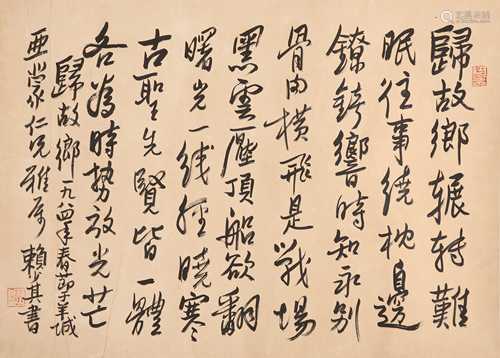 歸故鄉輾轉難
眠往事绕枕邊
鐐銬響時知永别
骨肉横飛是戰場
黑雲壓頂船欲翻
曙光一线經曉寒
古聖先賢皆一體
各為時勢放光芒
歸故鄉一九八四年春節于羊城
仁兄雅属 賴少其書